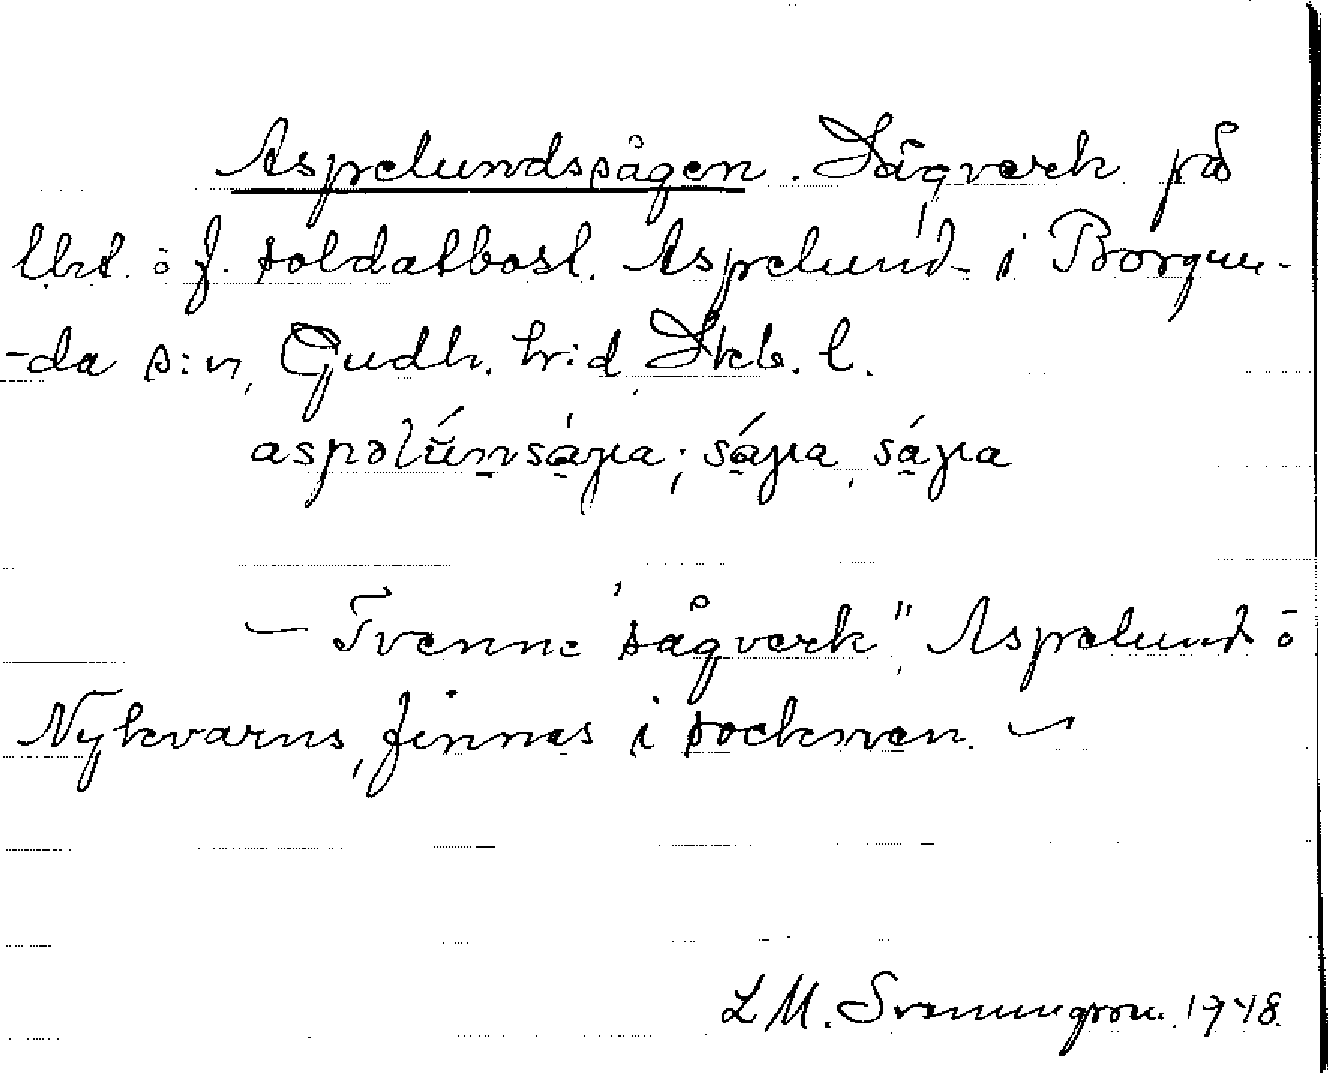 Aspelundssågen. Sågverk på
lht. o f. soldatbost. Aspelund i Borgun-
-da s:n, Gudh. hrd, Skb. l.
aspəlúnsága; ságja, ságja
– Tvenne "sågverk", Aspelund o
Nykvarns, finnas i socknen. –
L M. Svenungson 1948.